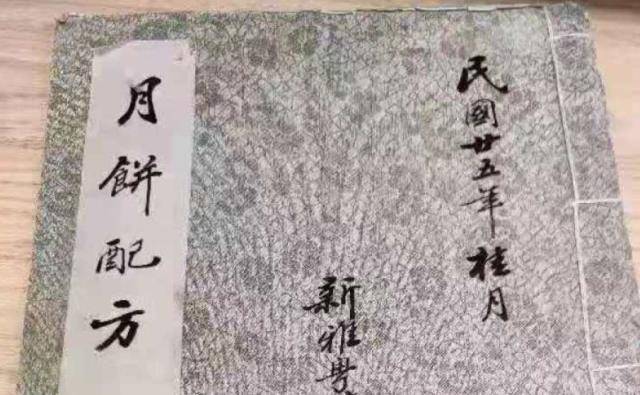 民國廿五年桂月
新雅
月餅配方